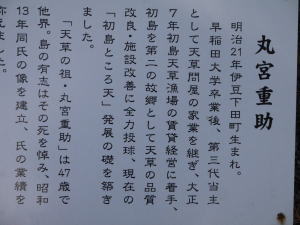 丸宮重助
明治21年伊豆下田町生まれ。
早稲田大学卒業後、第三代当主
として天草問屋の家業を継ぎ、大正
7年初島天草漁場の賃貸経営に着手、
初島を第二の故郷として天草の品質
改良・施設改善に全力投球、現在の
「初島ところ天」発展の礎を築き
ました。
「天草の祖・丸宮重助」は47歳で
他界。島の有志はその死を悼み、昭和
13年同氏の像を建立、氏の業績を
称えました。